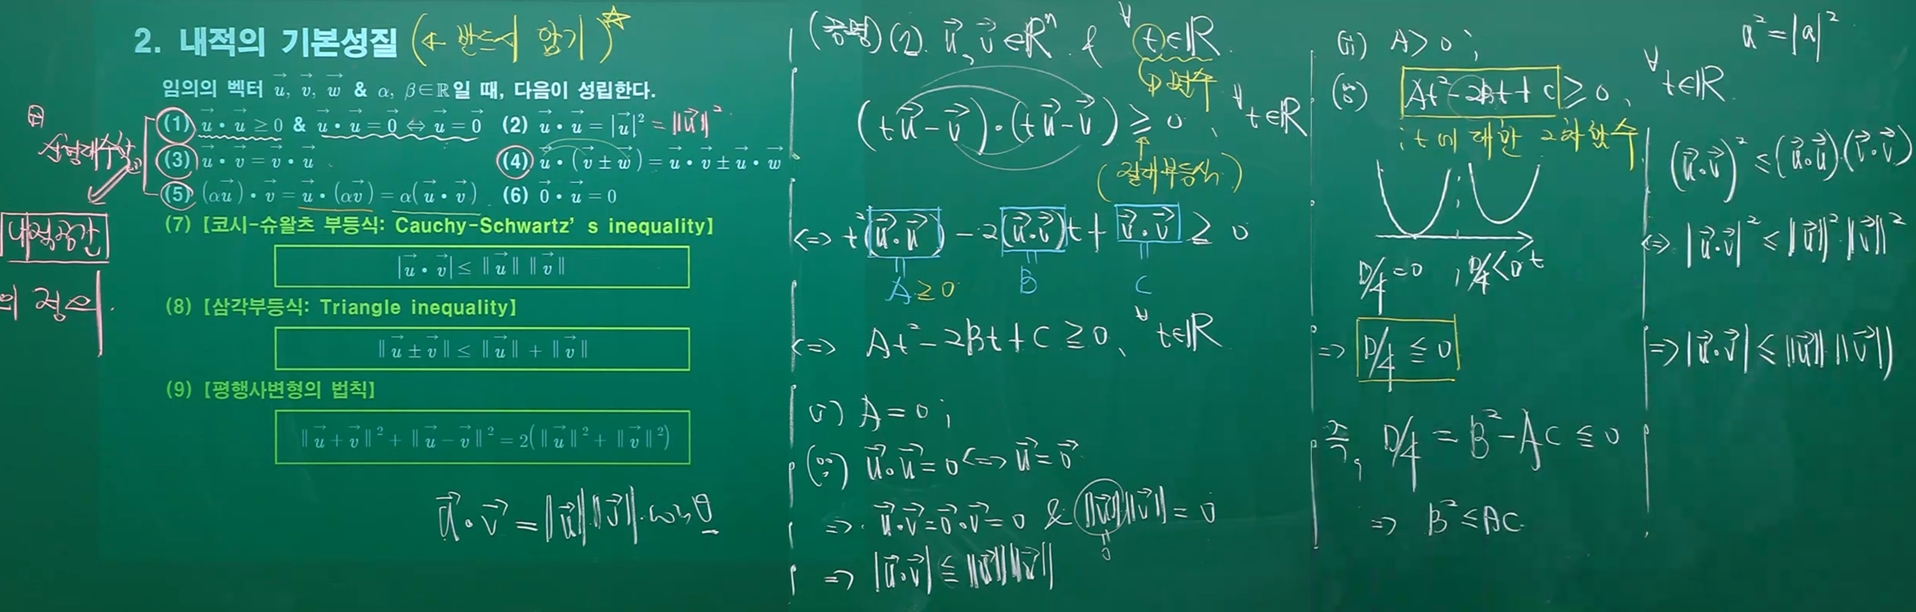 2. 내적의 기본성질 (← 반드시 암기)☆
임의의 벡터 u⃗, v⃗, w⃗ & α, β∈ℝ일 때, 다음이 성립한다.
(1) u⃗・u⃗ ≥ 0 & u⃗・u⃗ = 0⃗ ⇔ u⃗ = 0⃗ (2) u⃗・u⃗ = |u⃗|² = ‖u⃗‖²
(3) u⃗・v⃗ = v⃗・u⃗ (4) u⃗・(v⃗ ± w⃗) = u⃗・v⃗ ± u⃗・w⃗
(5) (αu⃗)・v⃗ = u⃗・(αv⃗) = α(u⃗・v⃗) (6) 0⃗・u⃗ = 0
내적공간
의 정의
(7) [코시-슈왈츠 부등식: Cauchy-Schwartz's inequality]
|u⃗・v⃗| ≤ ‖u⃗‖ ‖v⃗‖
(8) [삼각부등식: Triangle inequality]
‖u⃗ ± v⃗‖ ≤ ‖u⃗‖ + ‖v⃗‖
(9) [평행사변형의 법칙]
‖u⃗ + v⃗‖² + ‖u⃗ − v⃗‖² = 2(‖u⃗‖² + ‖v⃗‖²)
u⃗・v⃗ = ‖u⃗‖‖v⃗‖・cosθ
(증명) (1). u⃗, v⃗ ∈ ℝⁿ & ∀t∈ℝ.
(tu⃗ − v⃗)・(tu⃗ − v⃗) ≥ 0, ∀t∈ℝ
(절대부등식)
⇔ t²(u⃗・u⃗) − 2(u⃗・v⃗)t + v⃗・v⃗ ≥ 0
A ≥ 0 B C
⇔ At² − 2Bt + C ≧ 0, ∀t∈ℝ
i) A = 0 ;
(∵) u⃗・u⃗ = 0 ⇔ u⃗ = 0⃗
⇒ u⃗・v⃗ = 0⃗・v⃗ = 0 & ‖u⃗‖‖v⃗‖ = 0
0
⇒ |u⃗・v⃗| ≦ ‖u⃗‖‖v⃗‖
(ii) A > 0 ;
(∵) At² − 2Bt + C ≥ 0, ∀t∈ℝ
; t에 대한 2차함수
t
D/4 = 0 , D/4 < 0
⇒ D/4 ≦ 0
즉, D/4 = B² − AC ≦ 0
⇒ B² ≤ AC
a² = |a|²
(u⃗・v⃗)² ≤ (u⃗・u⃗)(v⃗・v⃗)
⇔ |u⃗・v⃗|² ≤ ‖u⃗‖²‖v⃗‖²
⇒ |u⃗・v⃗| ≤ ‖u⃗‖・‖v⃗‖